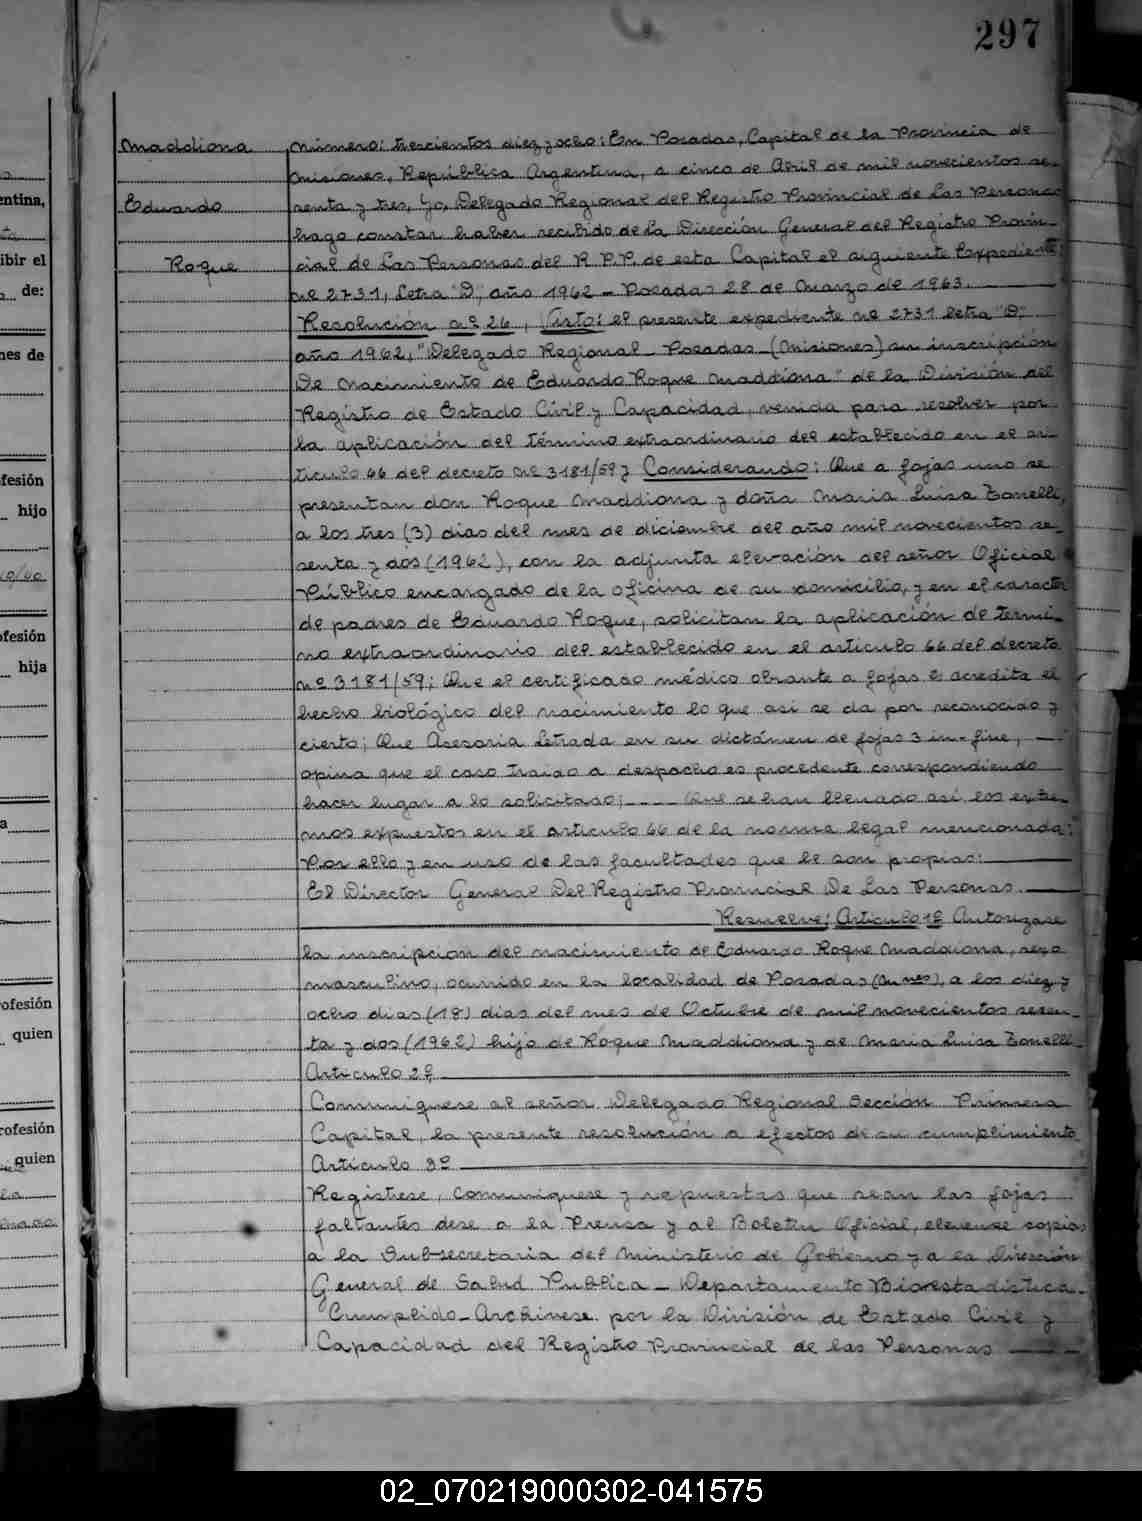 297
Maddiona
Eduardo
Roque
Número: trescientos diez y ocho: En Posadas, Capital de la Provincia de
Misiones, República Argentina, a cinco de Abril de mil novecientos se-
senta y tres, Yo, Delegado Regional del Registro Provincial de las Personas
hago constar haber recibido de la Dirección General del Registro Provin-
cial de las Personas del R.P.P. de esta Capital el siguiente Expediente:
nº 2731, Letra "D", año 1962 - Posadas 28 de Marzo de 1963.
Resolución nº 26, Visto: el presente expediente nº 2731 letra "D",
año 1962, "Delegado Regional - Posadas - (Misiones) su inscripción
De Nacimiento de Eduardo Roque Maddiona" de la División del
Registro de Estado Civil y Capacidad, venida para resolver por
la aplicación del término extraordinario del establecido en el ar-
tículo 66 del decreto nº 3181/59 y Considerando: Que a fojas uno se
presentan don Roque Maddiona y doña Maria Luisa Tonelli,
a los tres (3) dias del mes de diciembre del año mil novecientos se-
senta y dos (1962), con la adjunta elevación del señor Oficial
Público encargado de la oficina de su domicilio, y en el caracter
de padres de Eduardo Roque, solicitan la aplicación de térmi-
no extraordinario del establecido en el articulo 66 del decreto
nº 3181/59; Que el certificado médico obrante a fojas 2 acredita el
hecho biológico del nacimiento lo que asi se da por reconocido y
cierto; Que Asesoria Letrada en su dictámen de fojas 3 in-fine,
opina que el caso traido a despacho es procedente correspondiendo
hacer lugar a lo solicitado; Que se han llenado asi los extre-
mos expuestos en el articulo 66 de la norma legal mencionada;
Por ello y en uso de las facultades que le son propias:
El Director General Del Registro Provincial De Las Personas.
Resuelve: Articulo 1º Autorizase
la inscripcion del nacimiento de Eduardo Roque Maddiona, sexo
masculino, ocurrido en la localidad de Posadas (Mnes), a los diez y
ocho dias (18) dias del mes de Octubre de mil novecientos sesen-
ta y dos (1962) hijo de Roque Maddiona y de Maria Luisa Tonelli.
Articulo 2º
Comuniquese al señor Delegado Regional Sección Primera
Capital, la presente resolución a efectos de su cumplimiento.
Artículo 3º
Registrese, comuniquese y repuestas que sean las fojas
faltantes dese a la Prensa y al Boletin Oficial, elevense copias
a la Subsecretaria del Ministerio de Gobierno y a la Dirección
General de Salud Publica - Departamento Bioestadistica.
Cumplido - Archivese por la División de Estado Civil y
Capacidad del Registro Provincial de las Personas
entina,
ibir el
de:
nes de
fesión
hijo
ofesión
hija
a
ofesión
quien
rofesión
quien
02_070219000302-041575